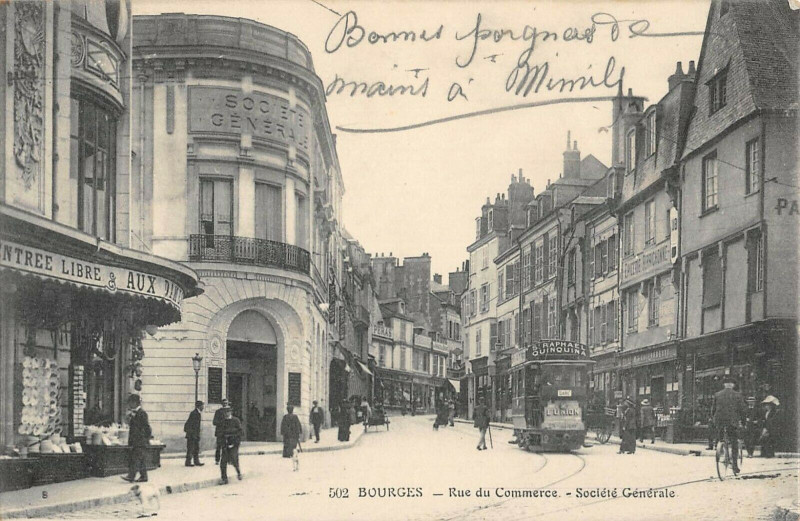 Bonnes poignées de
mains à Mimil
SOCIÉTÉ
GÉNÉRALE
ENTREE LIBRE & AUX
PA
St RAPHAEL
QUINQUINA
8
502 BOURGES — Rue du Commerce. - Société Générale